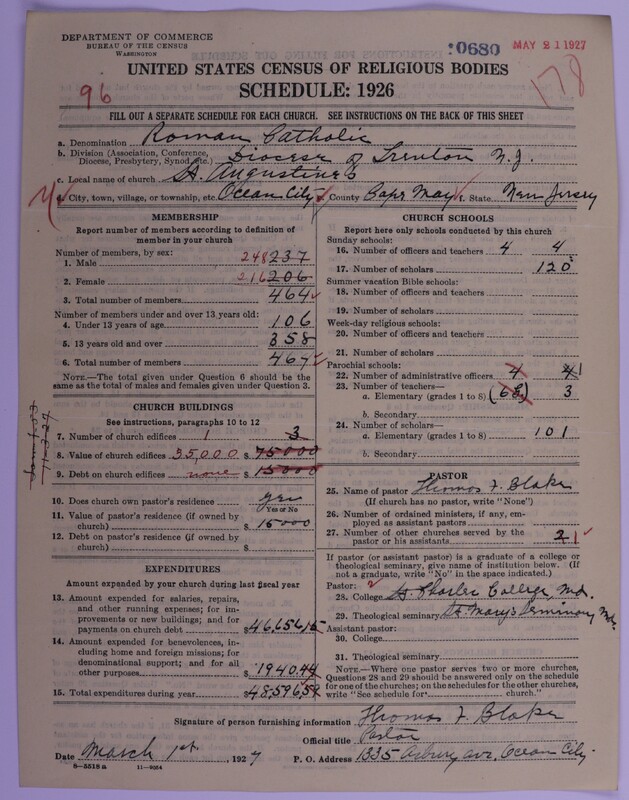 DEPARTMENT OF COMMERCE
BUREAU OF THE CENSUS
WASHINGTON
:0680 MAY 21 1927
UNITED STATES CENSUS OF RELIGIOUS BODIES
96 SCHEDULE: 1926 178
FILL OUT A SEPARATE SCHEDULE FOR EACH CHURCH. SEE INSTRUCTIONS ON THE BACK OF THIS SHEET
a. Denomination Roman Catholic
b. Division (Association, Conference, Diocese, Presbytery, Synod, etc.) Diocese of Trenton N.J.
c. Local name of church St. Augustine's
City, town, village, or township, etc. Ocean City County Cape May f. State New Jersey
MEMBERSHIP
Report number of members according to definition of member in your church
Number of members, by sex:
1. Male 248 237
2. Female 216 206
3. Total number of members 464
Number of members under and over 13 years old:
4. Under 13 years of age 106
5. 13 years old and over 358
6. Total number of members 467
NOTE.—The total given under Question 6 should be the same as the total of males and females given under Question 3.
CHURCH BUILDINGS
See instructions, paragraphs 10 to 12
7. Number of church edifices 1 3
8. Value of church edifices 35,000 $ 75000
9. Debt on church edifices none $ 15000
10. Does church own pastor's residence yes
Yes or No
11. Value of pastor's residence (if owned by church) $ 15000
12. Debt on pastor's residence (if owned by church) $
EXPENDITURES
Amount expended by your church during last fiscal year
13. Amount expended for salaries, repairs, and other running expenses; for improvements or new buildings; and for payments on church debt $ 46,656.15
14. Amount expended for benevolences, including home and foreign missions; for denominational support; and for all other purposes $ 1940.44
15. Total expenditures during year $ 48,596.59
CHURCH SCHOOLS
Report here only schools conducted by this church
Sunday schools:
16. Number of officers and teachers 4 4
17. Number of scholars 120
Summer vacation Bible schools:
18. Number of officers and teachers
19. Number of scholars
Week-day religious schools:
20. Number of officers and teachers
21. Number of scholars
Parochial schools:
22. Number of administrative officers 4 4 1
23. Number of teachers—
a. Elementary (grades 1 to 8) 3
b. Secondary
24. Number of scholars—
a. Elementary (grades 1 to 8) 101
b. Secondary
PASTOR
25. Name of pastor Thomas F. Blake
(If church has no pastor, write "None")
26. Number of ordained ministers, if any, employed as assistant pastors
27. Number of other churches served by the pastor or his assistants 2 1
If pastor (or assistant pastor) is a graduate of a college or theological seminary, give name of institution below. (If not a graduate, write "No" in the space indicated.)
Pastor:
28. College St. Charles College Md.
29. Theological seminary St. Mary's Seminary Md.
Assistant pastor:
30. College
31. Theological seminary
NOTE.—Where one pastor serves two or more churches, Questions 28 and 29 should be answered only on the schedule for one of the churches; on the schedules for the other churches, write "See schedule for church."
Signature of person furnishing information Thomas F. Blake
Official title Pastor
Date March 1st, 1927 P. O. Address 1335 Asbury Ave, Ocean City.
8—5518 a 11—9264